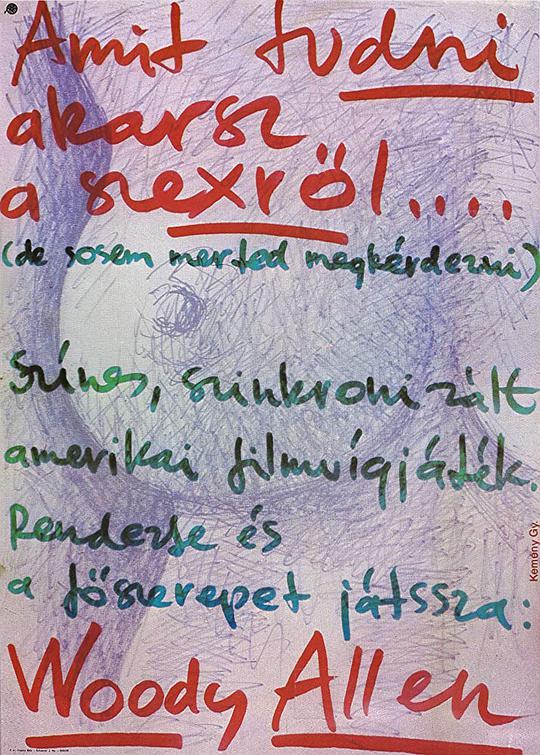 Amit tudni
akarsz
a szexről....
(de sosem merted megkérdezni)
Színes, szinkronizált
amerikai filmvígjáték.
Rendezte és
a főszerepet játssza:
Woody Allen
Kemény Gy.